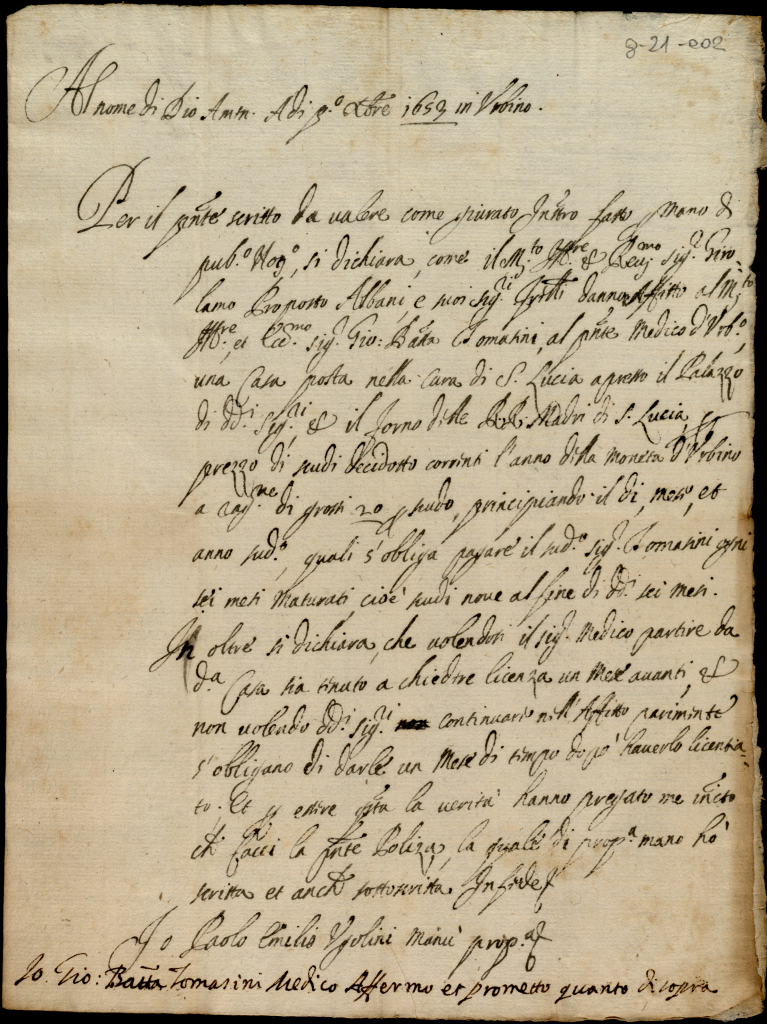 8-21-002
Al nome di Dio Amen. Adi p.º Xbre 1653 in Urbino.
Per il pnte scritto da valere come giurato Instro fatto p mano di
pub.º Not.º, si dichiara, come il M.to Ill.re & Rev.mo sig.r Giro-
lamo Proposto Albani, e suoi sig.ri frelli danno Affitto al M.to
Ill.re, et Ecc.mo sig.r Gio: Batta Tomasini, al pnte Medico d'Urb.º,
una Casa posta nella Cura di S. Lucia apresso il Palazzo
di dd.i sig.ri & il forno delle RR. Madri di S. Lucia, p
prezzo di scudi decidotto correnti l'anno della moneta d'Urbino
a rag.ne di grossi 20 p scudo, principiando il di, mese, et
anno sud.º, quali s'obliga pagare il sud.º sig.r Tomasini ogni
sei mesi maturati, cioè scudi nove al fine di dd.i sei mesi.
In oltre si dichiara, che volendosi il sig.r Medico partire da
d.a Casa sia tenuto a chiedere licenza un Mese avanti, &
non volendo dd.i sig.ri continuare nell'Affitto parimente
s'obligano di darle un Mese di tempo dopo haverlo licentia-
to. Et p essere qsta la verità hanno pregato me infrto
che facci la pnte Poliza, la quale di prop.a mano hò
scritta et anche sottoscritta. In fede
Io Paolo Emilio Ugolini Manu prop.a
Io. Gio: Batta Tomasini Medico Affermo et prometto quanto di sopra